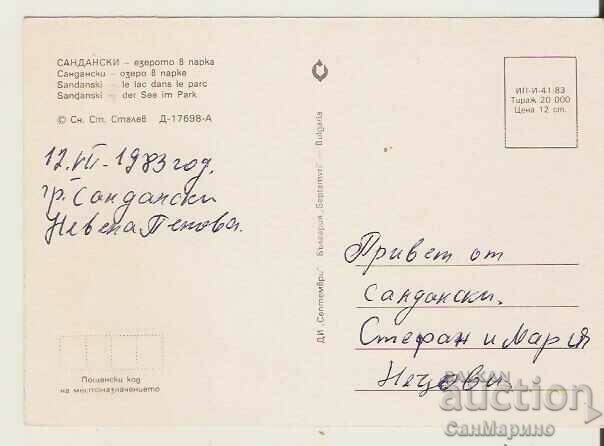 САНДАНСКИ – езерото в парка
Сандански – озеро в парке
Sandanski – le lac dans le parc
Sandanski – der See im Park
© Сн. Ст. Сталев Д-17698-А
12.VII-1983 год.
гр. Сандански
Невена Пенова.
Пощенски код
на местоназначението
ДИ „Септември" България „Septemvri" – Bulgaria
ИП-И-41-83
Тираж 20 000
Цена 12 ст.
Привет от
Сандански.
Стефан и Мария
Нецови
BALKAN
auction
СанМарино